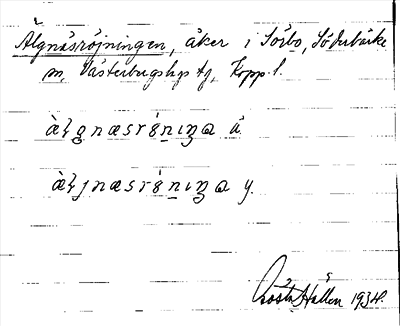 Älgnäsröjningen, åker i Sörbo, Söderbärke
sn, Västerbergslags tg, Kopp. l.
àƚgnæsrö́niŋa ä.
àƚjnæsrö́niŋa y.
Gösta Hallén 1934.